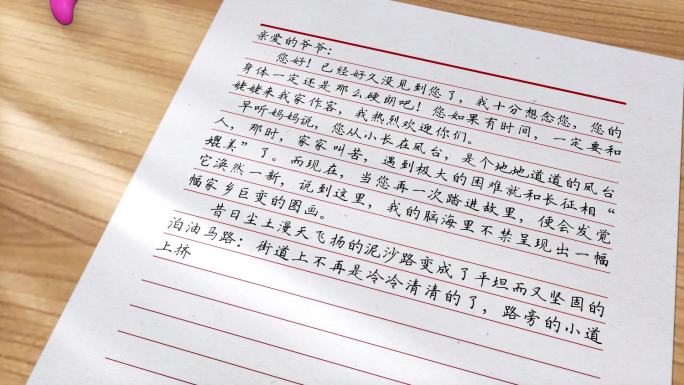 亲爱的爷爷：
您好！已经好久没见到您了，我十分想念您，您的
身体一定还是那么硬朗吧！您如果有时间，一定要和
姥姥来我家作客，我热烈欢迎你们。
早听妈妈说，您从小长在风台，是个地地道道的风台
人，那时，家家叫苦，遇到极大的困难就和长征相“
媲美”了。而现在，当您再一次踏进故里，便会发觉
它涣然一新，说到这里，我的脑海里不禁呈现出一幅
幅家乡巨变的图画。
昔日尘土漫天飞扬的泥沙路变成了平坦而又坚固的
泊油马路：街道上不再是冷冷清清的了，路旁的小道
上挤